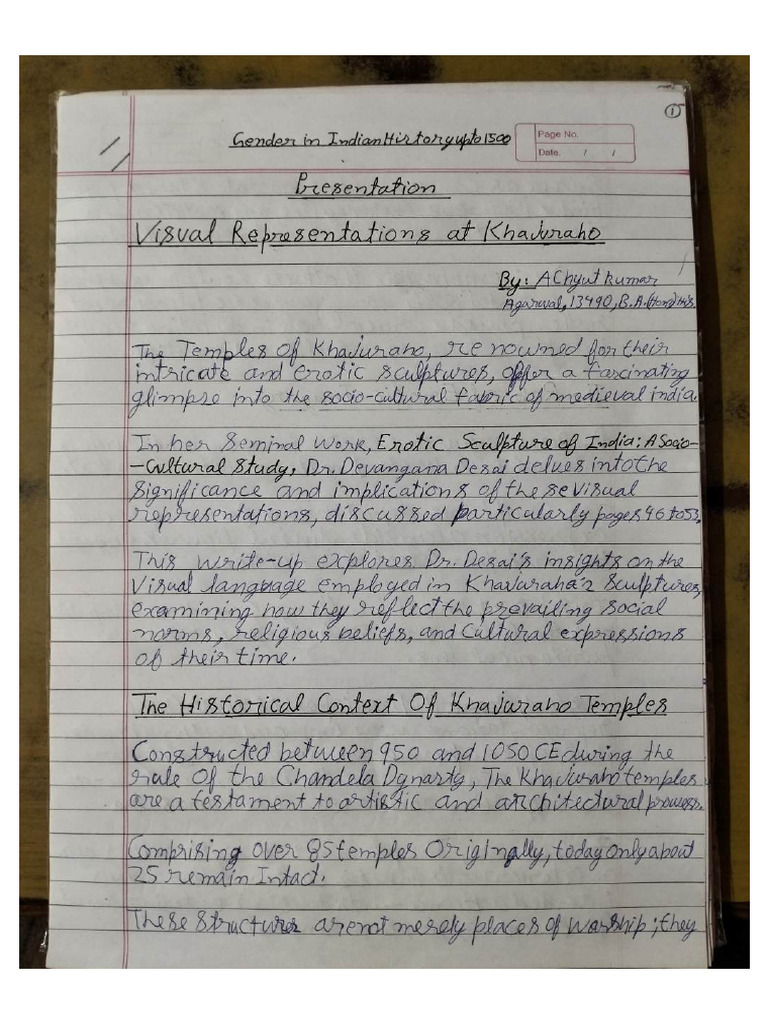 ①
Gender in Indian History upto 1500
Page No.
Date. / /
Presentation
Visual Representations at Khajuraho
By: Achyut kumar
Agarwal, 13490, B.A.(Hon) His.
The Temples of Khajuraho, renowned for their
intricate and erotic sculptures, offer a fascinating
glimpse into the socio-cultural fabric of medieval india.
In her seminal work, Erotic Sculpture of India: A Socio-
-Cultural Study, Dr. Devangana Desai delves into the
significance and implications of these visual
representations, discussed particularly pages 46 to 53.
This write-up explores Dr. Desai's insights on the
visual language employed in Khajuraha's sculptures,
examining how they reflect the prevailing social
norms, religious beliefs, and cultural expressions
of their time.
The Historical Context Of Khajuraho Temples
Constructed between 950 and 1050 CE during the
rule of the Chandela Dynasty, The Khajuraho temples
are a testament to artistic and architectural prowess.
Comprising over 85 temples Originally, today only about
25 remain Intact.
These structures are not merely places of worship; they